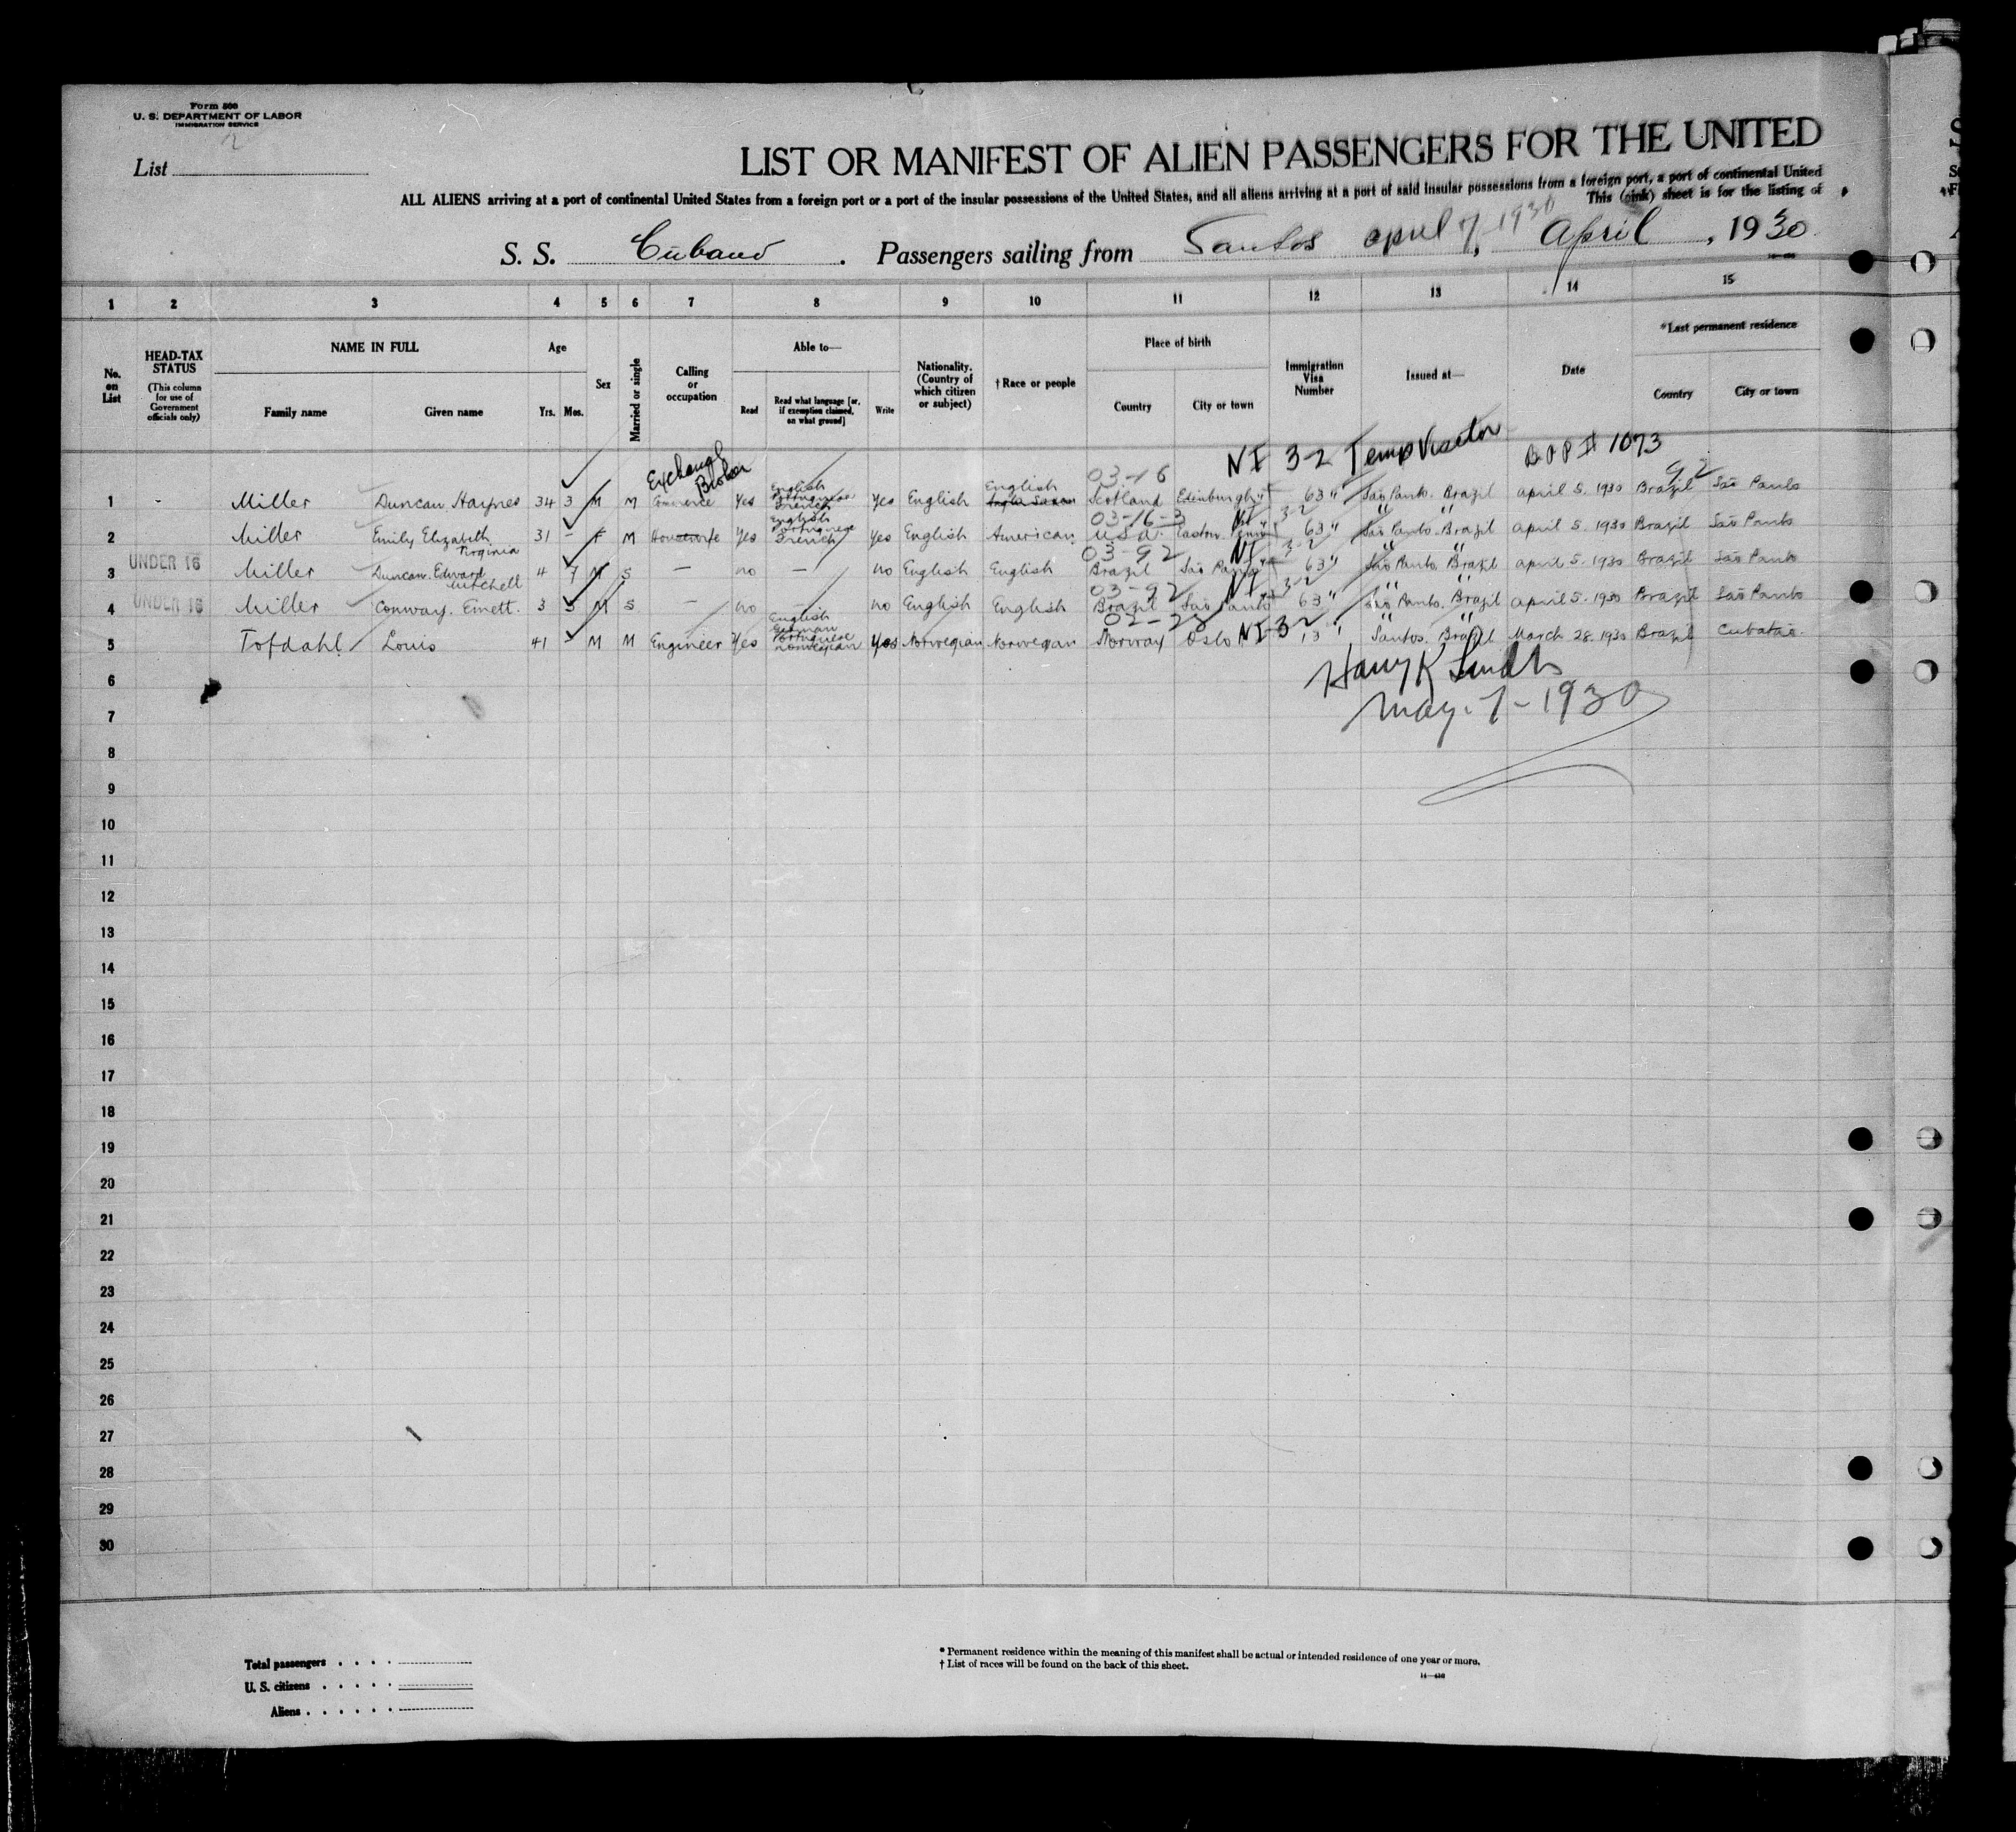 Form 500
U. S. DEPARTMENT OF LABOR
IMMIGRATION SERVICE
List
LIST OR MANIFEST OF ALIEN PASSENGERS FOR THE UNITED
ALL ALIENS arriving at a port of continental United States from a foreign port or a port of the insular possessions of the United States, and all aliens arriving at a port of said insular possessions from a foreign port, a port of continental United
This (pink) sheet is for the listing of
S. S. Cubano . Passengers sailing from Santos april 7, 1930 April , 1930
1 2 3 4 5 6 7 8 9 10 11 12 13 14 15
No. on List
HEAD-TAX STATUS
(This column for use of Government officials only)
NAME IN FULL
Family name Given name
Age
Yrs. Mos.
Sex
Married or single
Calling or occupation
Able to—
Read
Read what language [or, if exemption claimed, on what ground]
Write
Nationality. (Country of which citizen or subject)
† Race or people
Place of birth
Country City or town
Immigration Visa Number
Issued at—
Date
*Last permanent residence
Country City or town
NI 3-2 Temp Visitor B.P.P # 1073
Exchange Broker 03-16 92
1 Miller Duncan Haynes 34 3 M M Commerce Yes English Portuguese French Yes English English Anglo Saxon Scotland Edinburgh 63 São Paulo. Brazil April 5. 1930 Brazil São Paulo
03-16-3 NI 3-2
2 Miller Emily Elizabeth Virginia 31 - F M Housewife Yes English Portuguese French Yes English American U.S.A. Easton. Penn 63 São Paulo. Brazil April 5. 1930 Brazil São Paulo
03-92 NI 3-2
UNDER 16
3 Miller Duncan. Edward Mitchell 4 7 M S — no — no English English Brazil São Paulo 63 São Paulo. Brazil April 5. 1930 Brazil São Paulo
03-92 NI 3-2
UNDER 16
4 Miller Conway. Emett. 3 5 M S — no — no English English Brazil São Paulo 63 São Paulo. Brazil April 5. 1930 Brazil São Paulo
02-23 NI-3-2
5 Tofdahl Louis 41 M M Engineer Yes English German Portuguese Norwegian Yes Norwegian Norwegian Norway Oslo 13 Santos. Brazil March 28. 1930 Brazil Cubatão.
6
Harry K
May. 7-1930
7
8
9
10
11
12
13
14
15
16
17
18
19
20
21
22
23
24
25
26
27
28
29
30
Total passengers . . . .
U. S. citizens . . . . .
Aliens . . . . . .
* Permanent residence within the meaning of this manifest shall be actual or intended residence of one year or more.
† List of races will be found on the back of this sheet.